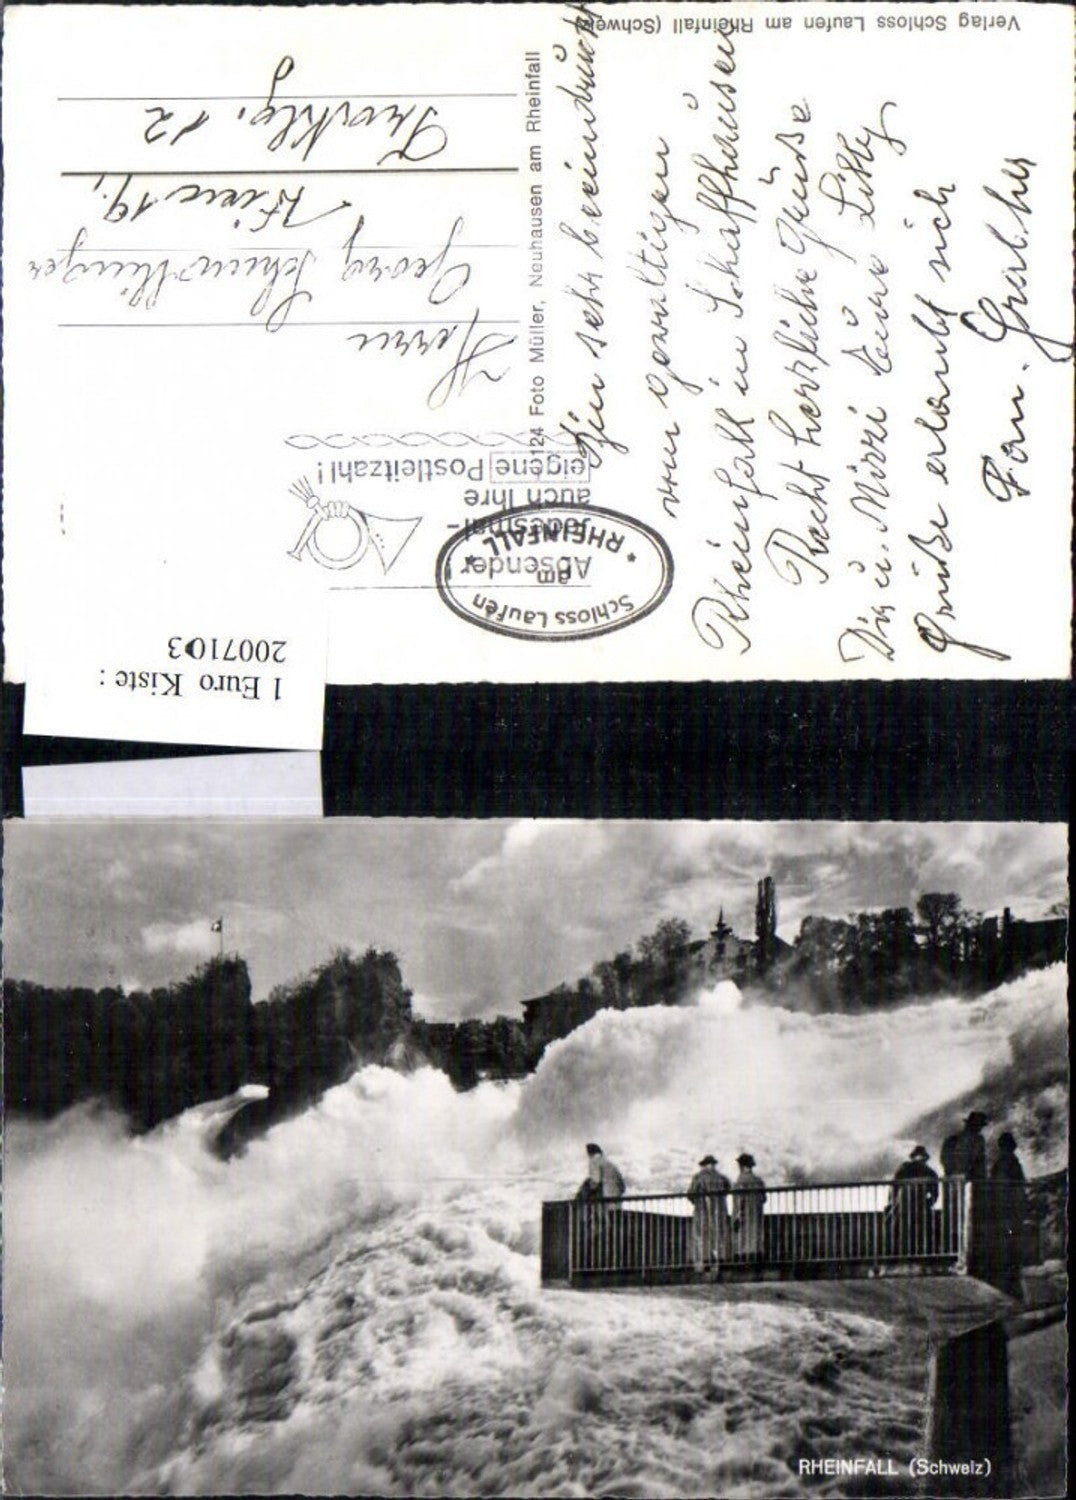 Verlag Schloss Laufen am Rheinfall (Schweiz)
Bin sehr beeindruckt
vom gewaltigen
Rheinfall in Schaffhausen
Recht herzliche Grüße
Dir u. Mizzi Eure Silly
Grüße erlaubt sich
Fam. Grabher
124 Foto Müller, Neuhausen am Rheinfall
Absender!
jedesmal
auch Ihre
eigene Postleitzahl!
Schloss Laufen
am
* RHEINFALL *
Herrn
Georg
Wien 19,
12
1 Euro Kiste :
2007103
RHEINFALL (Schweiz)